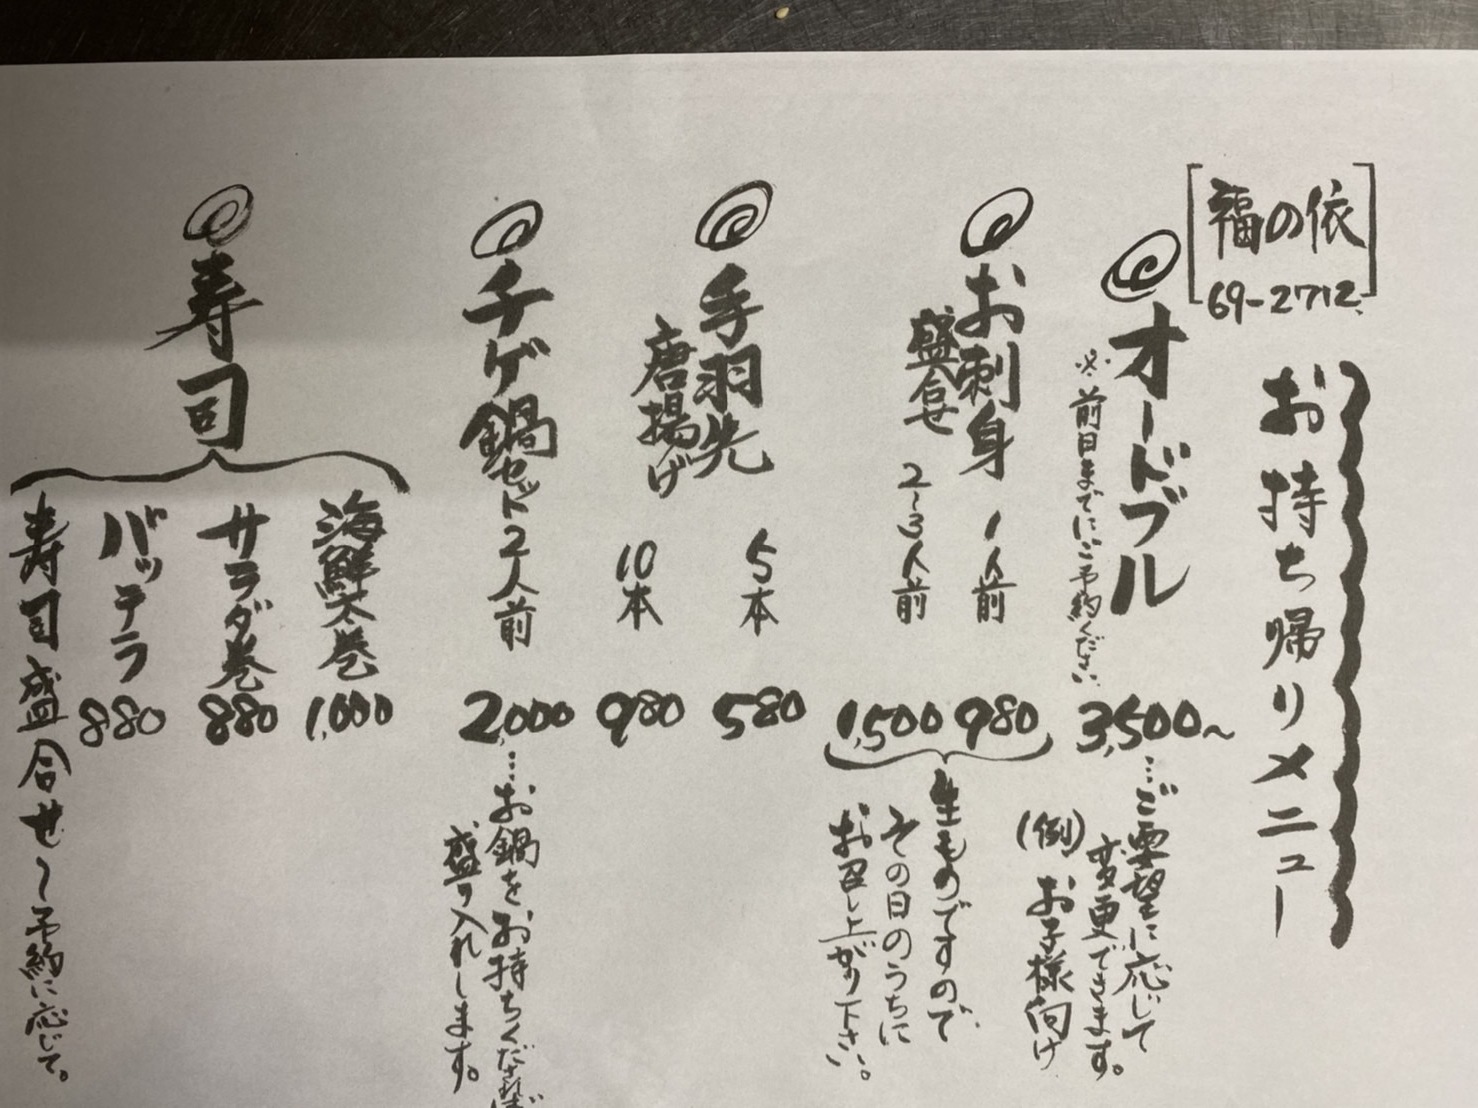 福の依
69-2712
お持ち帰りメニュー
オードブル 3,500~
※前日までにご予約ください。
…ご要望に応じて
変更できます。
(例)お子様向け
お刺身 1人前 980
盛合せ 2~3人前 1,500
生ものですので
その日のうちに
お召し上がり下さい。
手羽先 5本 580
唐揚げ 10本 980
チゲ鍋セット2人前 2,000
…お鍋をお持ちくだされば
盛り入れします。
寿司
海鮮太巻 1,000
サラダ巻 880
バッテラ 880
寿司盛合せ~予約に応じて。